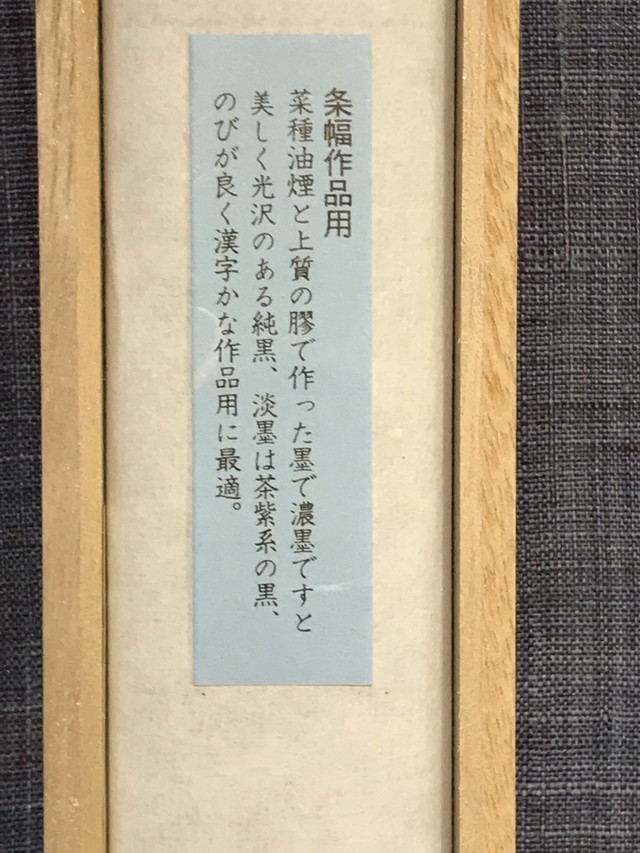 条幅作品用
菜種油煙と上質の膠で作った墨で濃墨ですと
美しく光沢のある純黒、淡墨は茶紫系の黒、
のびが良く漢字かな作品用に最適。